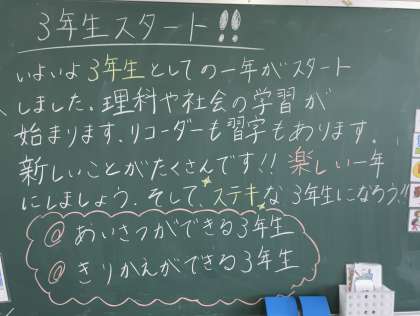 3年生スタート!!
いよいよ3年生としての一年がスタート
しました。理科や社会の学習が
始まります。リコーダーも習字もあります。
新しいことがたくさんです!! 楽しい一年
にしましょう。そして、ステキな3年生になろう!!
◎ あいさつができる3年生
◎ きりかえができる3年生